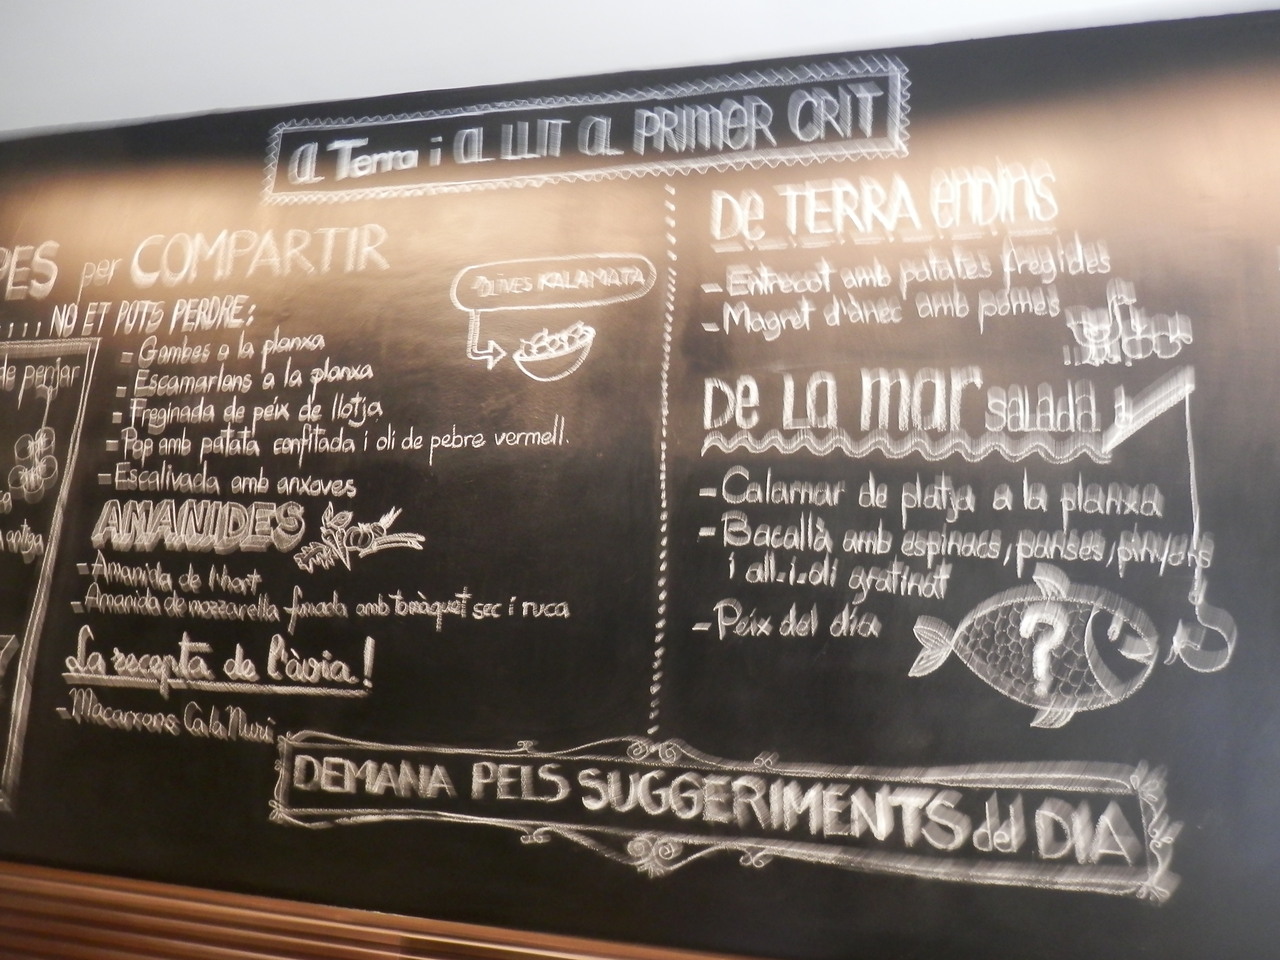 a Terra i a LLIT al PRIMER CRIT
PES per COMPARTIR
.... NO ET POTS PERDRE:
- Gambes a la planxa
- Escamarlans a la planxa
- Freginada de peix de llotja
- Pop amb patata confitada i oli de pebre vermell.
- Escalivada amb anxoves
OLIVES KALAMATA
de penjar
AMANIDES
- Amanida de l'hort
- Amanida de mozzarella fumada amb tomàquet sec i ruca
La recepta de l'àvia!
- Macarrons Cala Nuri
De TERRA endins
- Entrecot amb patates fregides
- Magret d'ànec amb pomes
De La mar salada
- Calamar de platja a la planxa
- Bacallà amb espinacs, panses, pinyons
i all-i-oli gratinat
- Peix del dia
?
DEMANA PELS SUGGERIMENTS del DIA